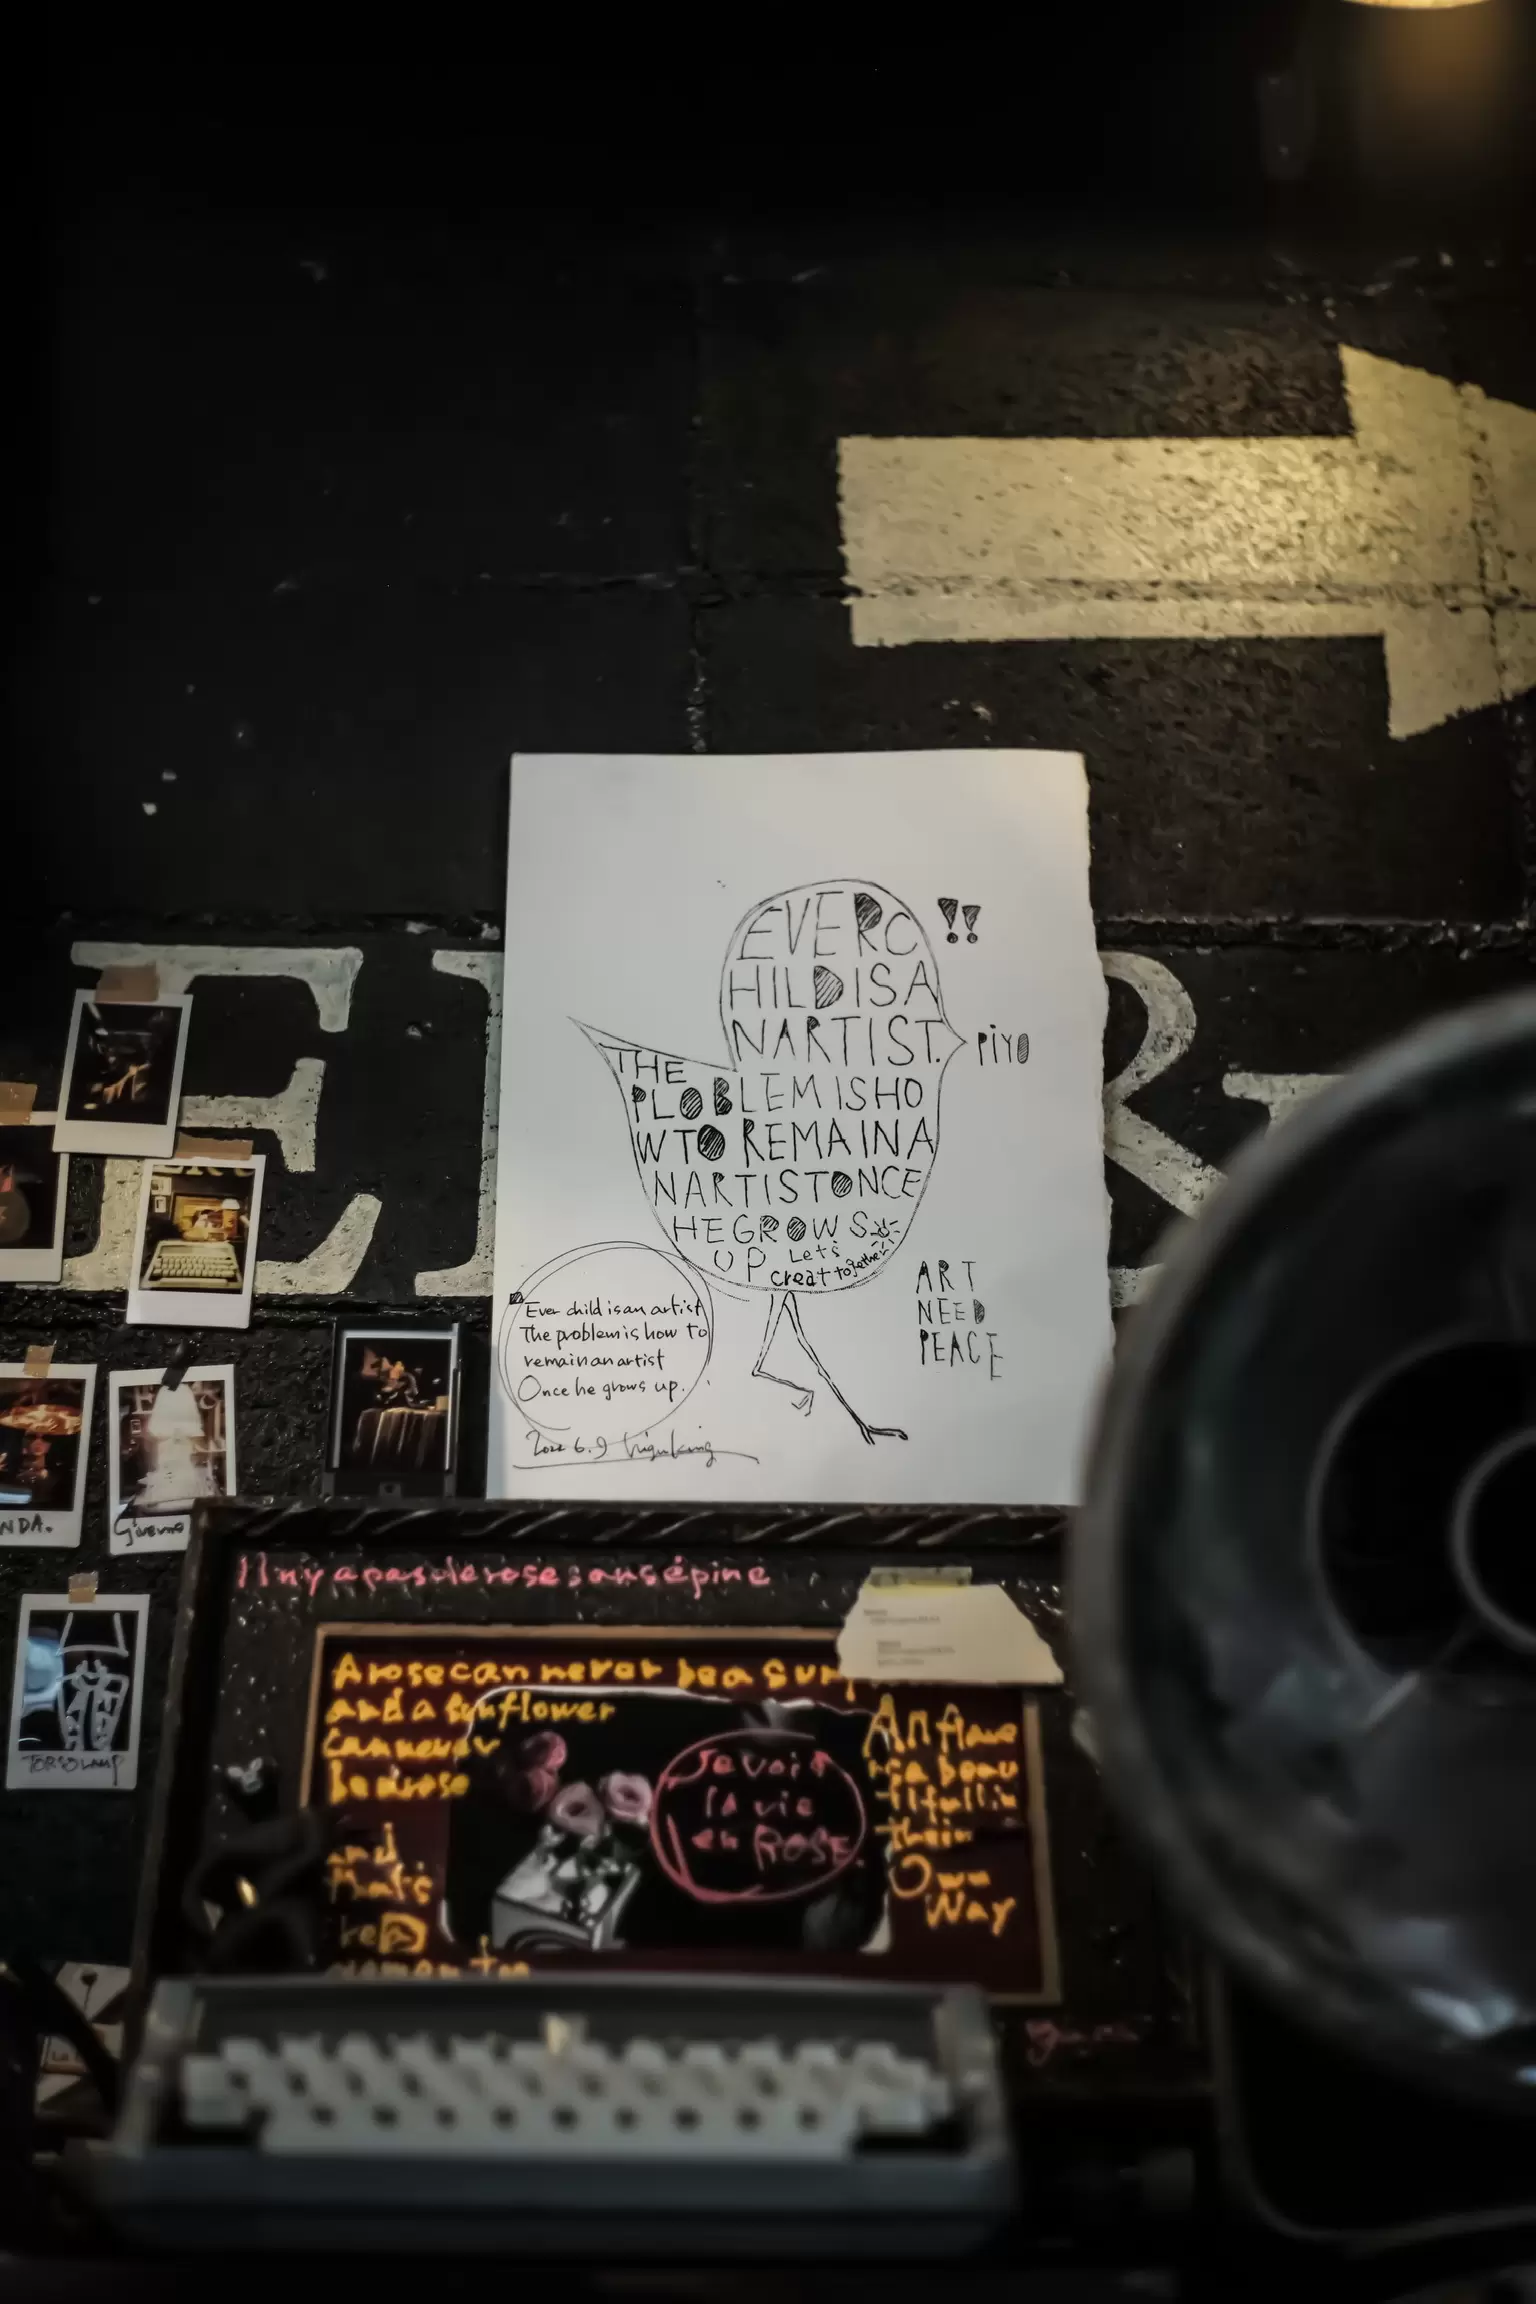 EVERC !!
HILDISA
NARTIST. PiYO
THE
PLOBLEM ISHO
WTO REMAINA
NARTISTONCE
HEGROWS
UP Let's
creat together
ART
NEED
PEACE
"Ever child is an artist
The problem is how to
remain an artist
Once he grows up.
6.9
NDA.
Giverno
TORSO LAMP
Il ny a pas de rose sans épine
A rose can never be a sun
and a sunflower
can never
be a rose
and
that's
Je vois
la vie
en ROSE.
All flowe
rs a beau
tifull in
their
Own
Way